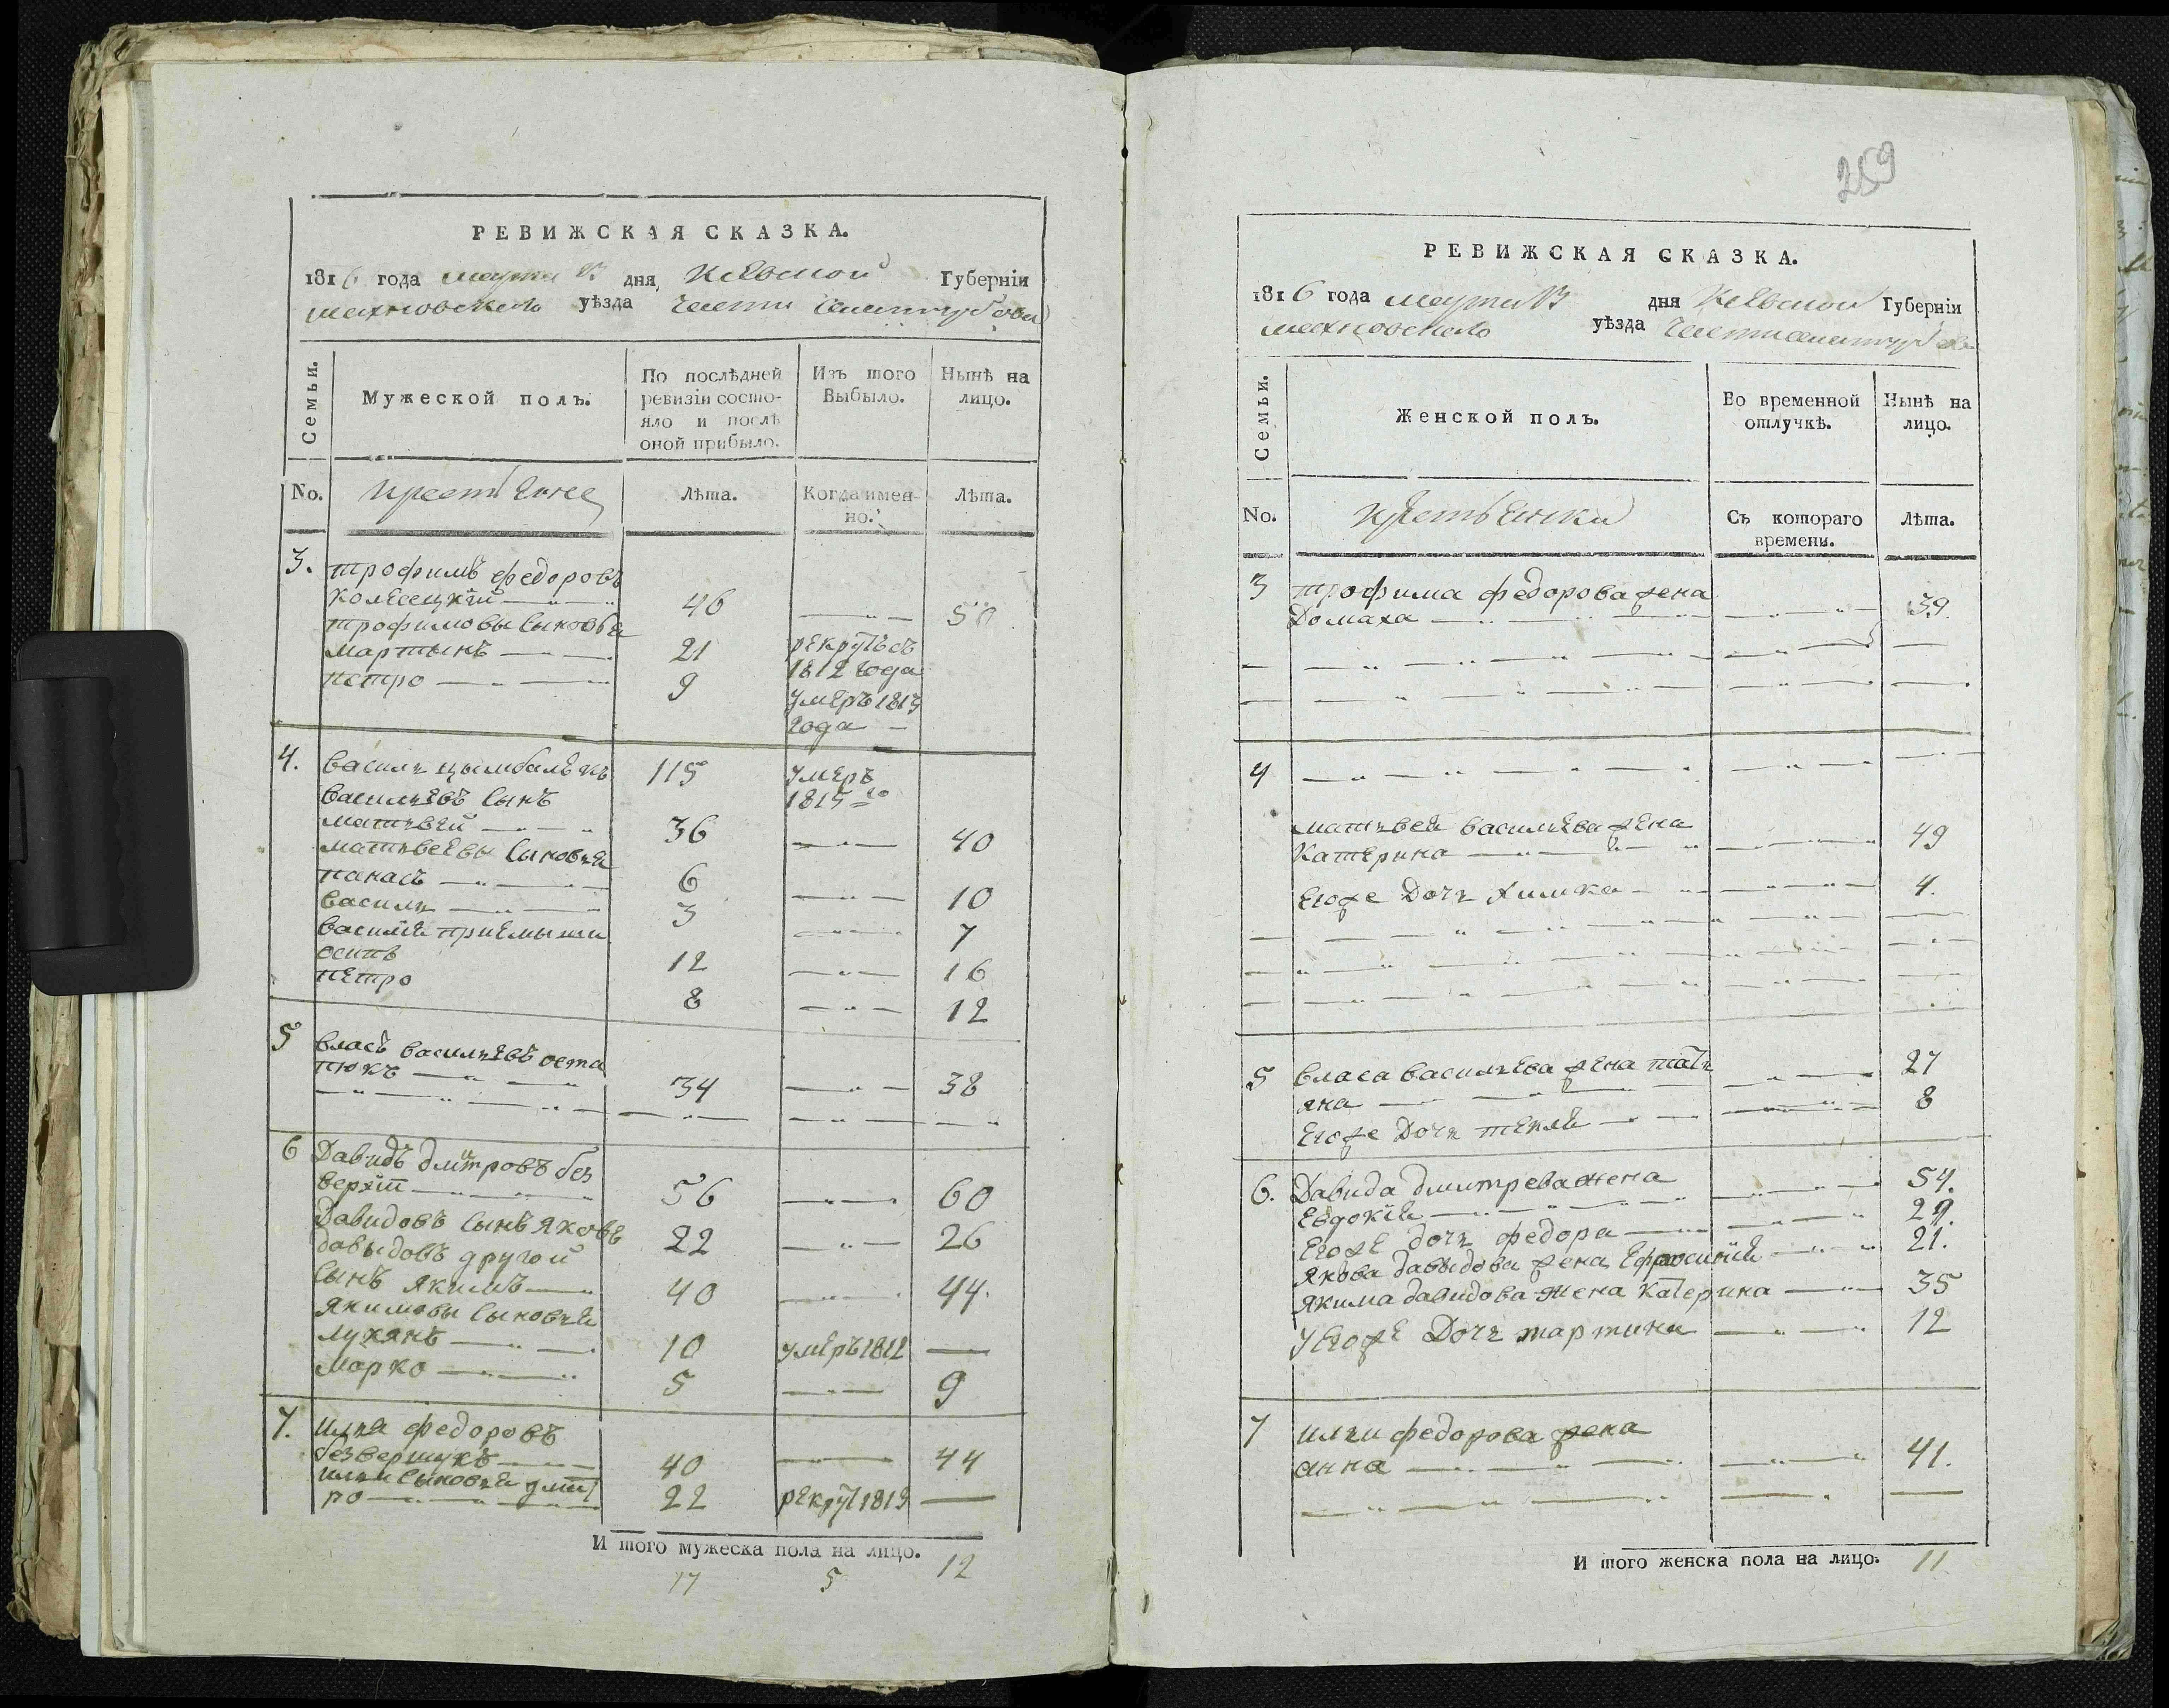 РЕВИЖСКАЯ СКАЗКА.
1816 года марта дня Киевской Губерніи
махновскаго уѣзда части
Семьи. Мужеской полъ. По послѣдней ревизіи состояло и послѣ оной прибыло. Изъ того Выбыло. Нынѣ на лицо.
No. крестьяне Лѣта. Когда имен-но. Лѣта.
3. трофимъ федоровъ
колесецкїй 46 50
трофимовы сыновья
мартынъ 21 рекрутъ съ 1812 года
петро 9 умеръ 1813 года
4. василь цымбалѣкъ 115 умеръ 1815 го
васильевъ сынъ
матьвей 36 40
матьвеевы сыновья
панасъ 6 10
василь 3 7
василія приемыши
осипъ 12 16
петро 8 12
5 власъ васильевъ оста
пюкъ 34 38
6 Давидъ дмитровъ без
верхїй 56 60
Давидовъ сынъ яковъ 22 26
давыдовъ другой
сынъ якимъ 40 44.
якимовы сыновья
лукянъ 10 умеръ 1812
марко 5 9
7. илья федоровъ
безвершукъ 40 44
ильи сыновья дмит
ро 22 рекрут 1813
И того мужеска пола на лицо. 12
17 5
259
РЕВИЖСКАЯ СКАЗКА.
1816 года марта дня Киевской Губерніи
махновскаго уѣзда части
Семьи. Женской полъ. Во временной отлучкѣ. Нынѣ на лицо.
No. крестьянки Съ котораго времени. Лѣта.
3 трофима федорова жена
Домаха 39.
4
матьвея васильева жена
Катерина 49
Егоже дочь Химка 4.
5 власа васильева жена тать
яна 27
Егоже дочь текля 8
6. Давида дмитрева жена
Евдокія 54.
Егоже дочь федора 29.
Якова давыдова жена Ефросинія 21.
Якима давидова жена Катерина 35
У Егоже дочь мартина 12
7 ильи федорова жена
анна 41.
И того женска пола на лицо. 11